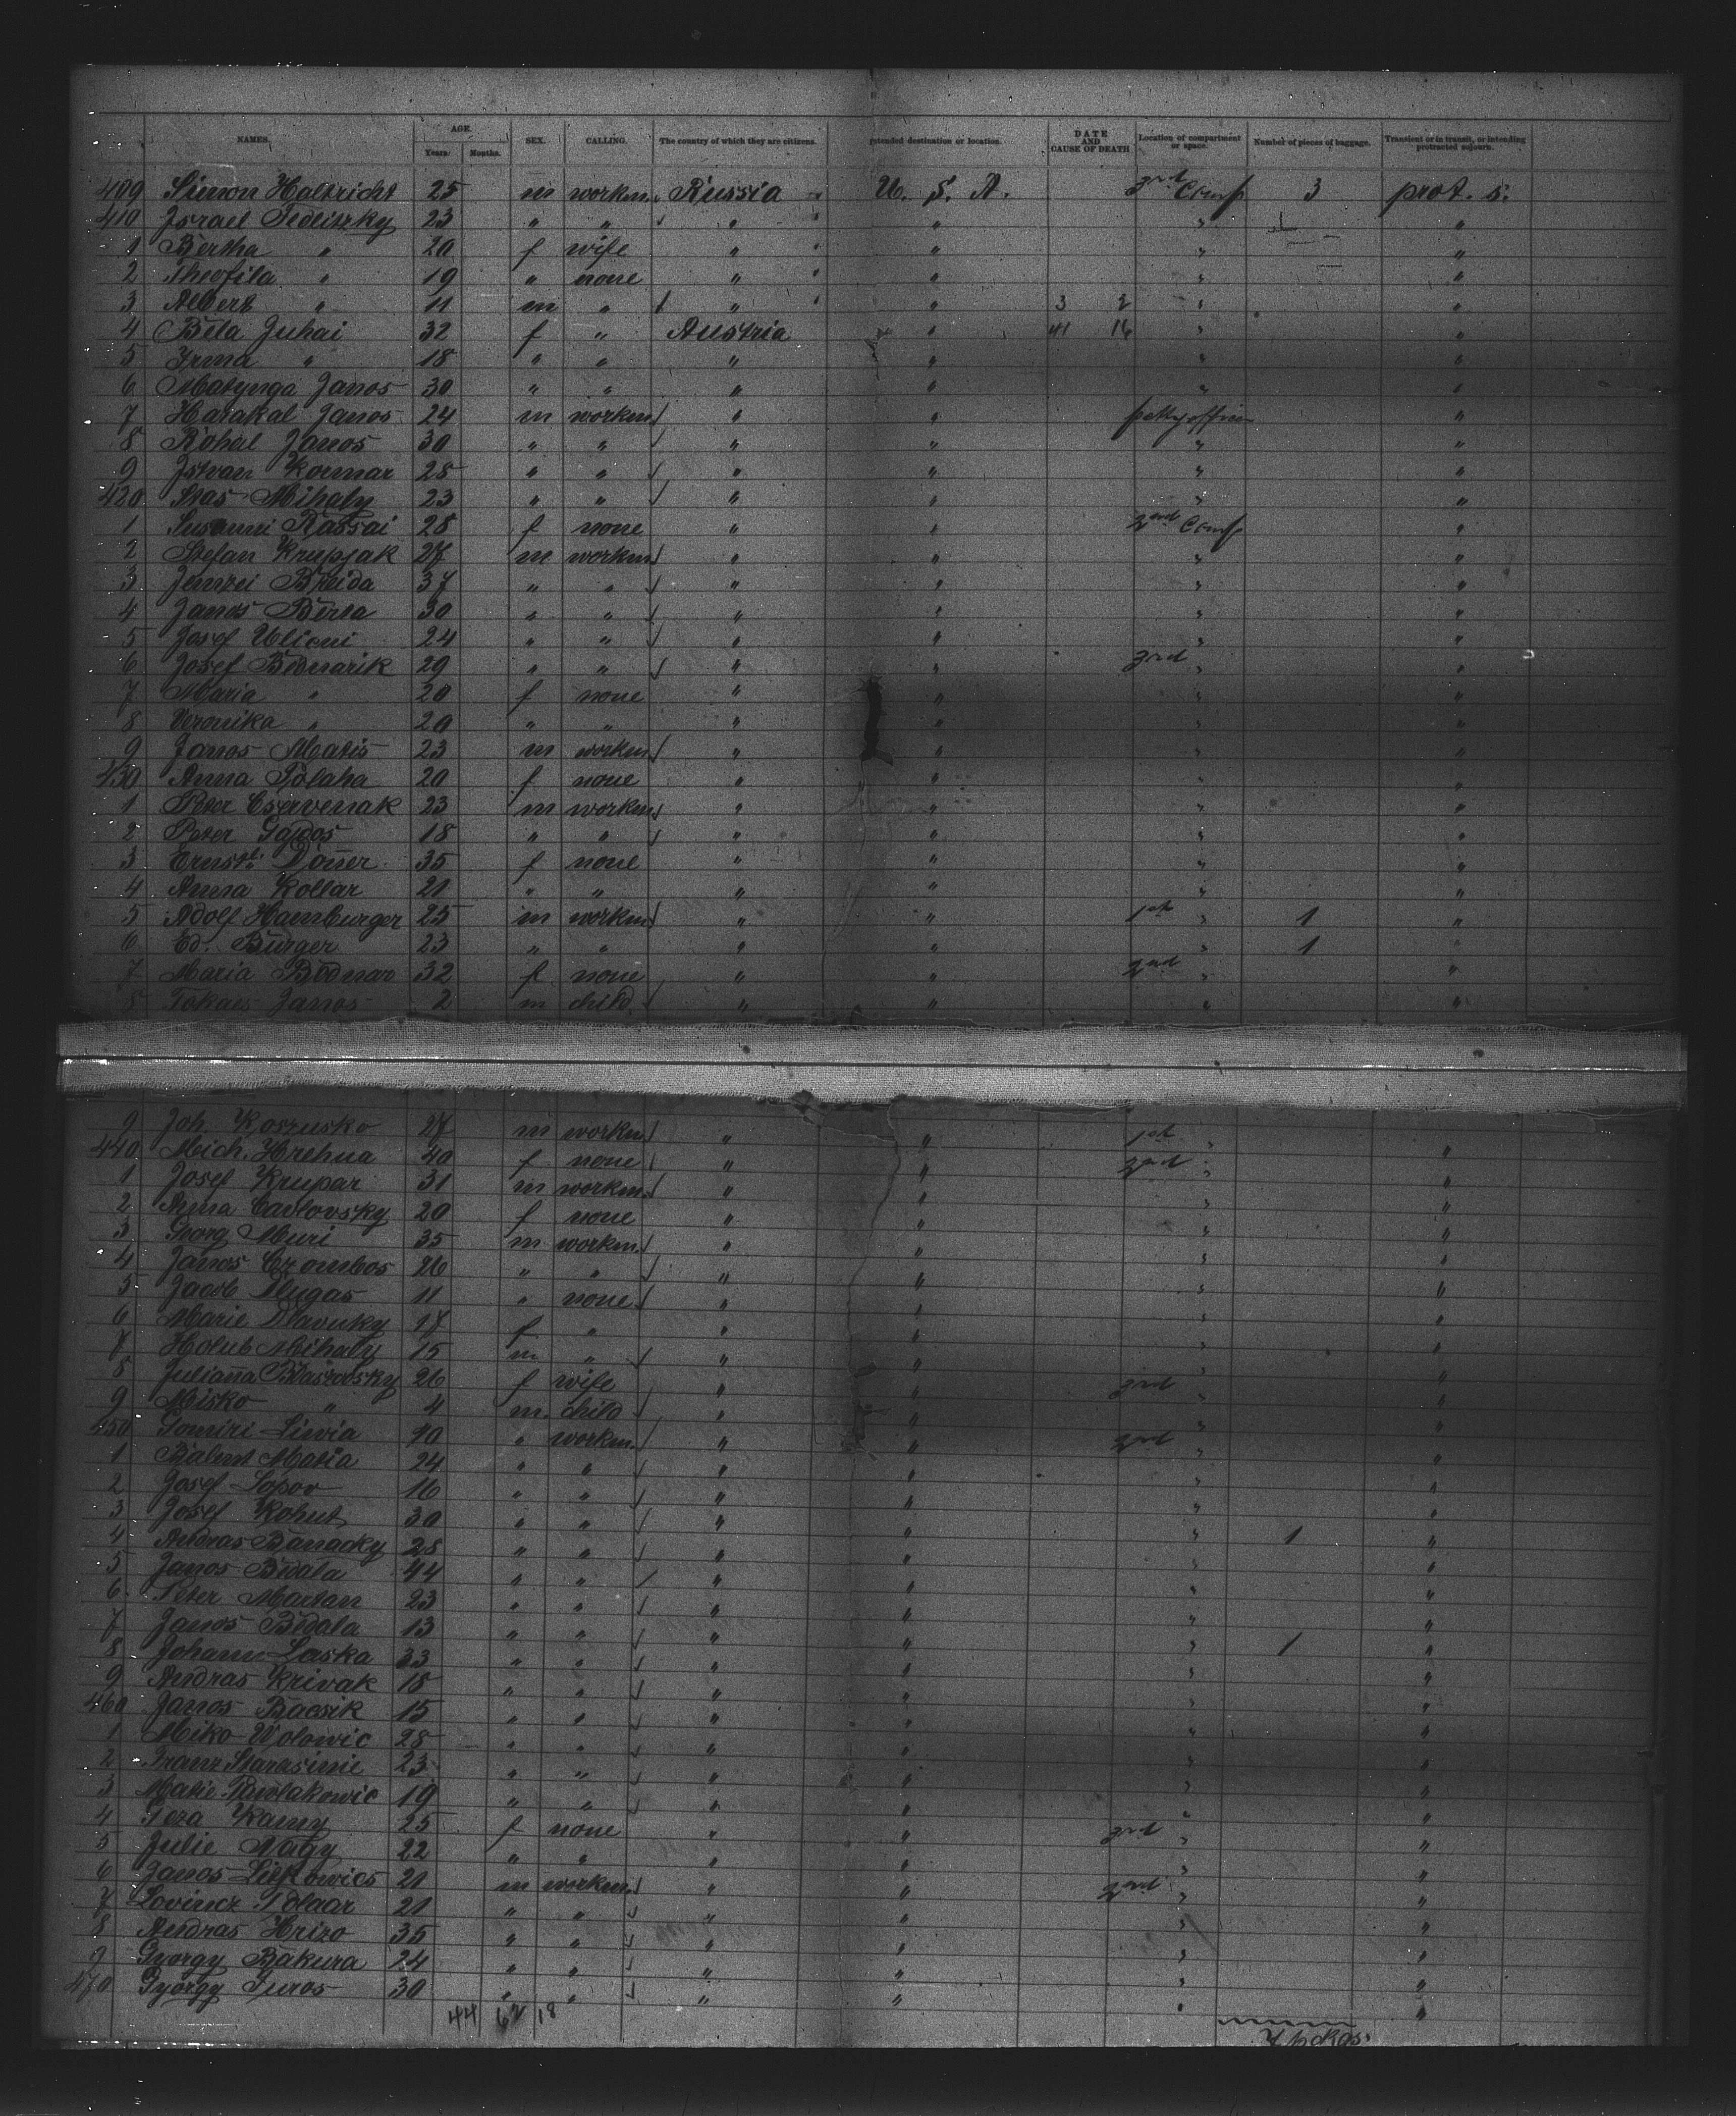 NAMES. AGE. Years. Months. SEX. CALLING. The country of which they are citizens. Intended destination or location. DATE AND CAUSE OF DEATH Location of compartment or space. Number of pieces of baggage. Transient or in transit, or intending protracted sojourn.
409 Simon Haltricht 25 m workm. Russia U. S. A. 3rd Comp 3 prot. s.
410 Israel Sedliszky 23 " " " " " "
1 Bertha " 20 f wife " " " "
2 Theofila " 19 " none " " " "
3 Albert " 11 m " " " 3 2 " "
4 Bela Juhai 32 f " Austria " 41 16 " "
5 Irma " 18 " " " " " "
6 Matynga Janos 30 " " " " " "
7 Harakal Janos 24 m workm " " petty office "
8 Rohal Janos 30 " " " " " "
9 Istvan Kormar 28 " " " " " "
420 Mihaly 23 " " " " " "
1 Susanni Rassai 28 f none " " 2nd Comp "
2 Stefan Krupjak 27 m workm " " " "
3 Breida 37 " " " " " "
4 Janos Berta 30 " " " " " "
5 Josef Uliani 24 " " " " " "
6 Josef Bednarik 29 " " " " 3rd " "
7 Maria " 20 f none " " " "
8 Veronika " 20 " " " " " "
9 Janos Matis 23 m workm " " " "
430 Anna Polaha 20 f none " " " "
1 Peter Cservenak 23 m workm " " " "
2 Peter Gajdos 18 " " " " " "
3 Ernst. Donner 35 f none " " " "
4 Anna Kollar 21 " " " " " "
5 Adolf Hamburger 25 m workm " " 1st " 1 "
6 Ed. Burger 23 " " " " " 1 "
7 Maria Bodnar 32 f none " " 2nd " "
8 Tokacs Janos 2 m child " " " "
9 Joh. Koszusko 27 m workm " " 1st " "
440 Mich. Hrehua 40 f none " " 2nd " "
1 Josef Krupar 31 m workm. " " " "
2 Anna Cavlovsky 20 f none " " " "
3 Georg Muri 35 m workm. " " " "
4 Janos Crombos 26 " " " " " "
5 Jacob Dlugas 11 " none " " " "
6 Marie Slavuky 17 f " " " " "
7 Holub Mihaly 15 m " " " " "
8 Julianna 26 f wife " " 3rd " "
9 Misko " 4 m. child " " " "
450 Gomiri Liwia 40 " workm. " " 2nd " "
1 Balint Matia 24 " " " " " "
2 Josef Sopov 16 " " " " " "
3 Josef Kohut 30 " " " " " "
4 Andras Banacky 28 " " " " " 1 "
5 Janos Bidala 44 " " " " " "
6 Peter Martan 23 " " " " " "
7 Janos Bidala 13 " " " " " "
8 Johann Laska 33 " " " " " 1 "
9 Andras Krivak 18 " " " " " "
460 Janos Bacsik 15 " " " " " "
1 Miko Wolowic 28 " " " " " "
2 Franz Starasinic 23 " " " " " "
3 Matie Pawlakowic 19 " " " " " "
4 Geza Kamy 25 f none " " 3rd " "
5 Julie Nagy 22 " " " " " "
6 Janos Litkowics 21 m workm. " " 2nd " "
7 Lovincz Polaar 21 " " " " " "
8 Andras Hrizo 35 " " " " " "
9 Gyorgy Bakura 24 " " " " " "
470 Gyorgy Juros 30 " " " " " "
44 62 18
7 pckgs.